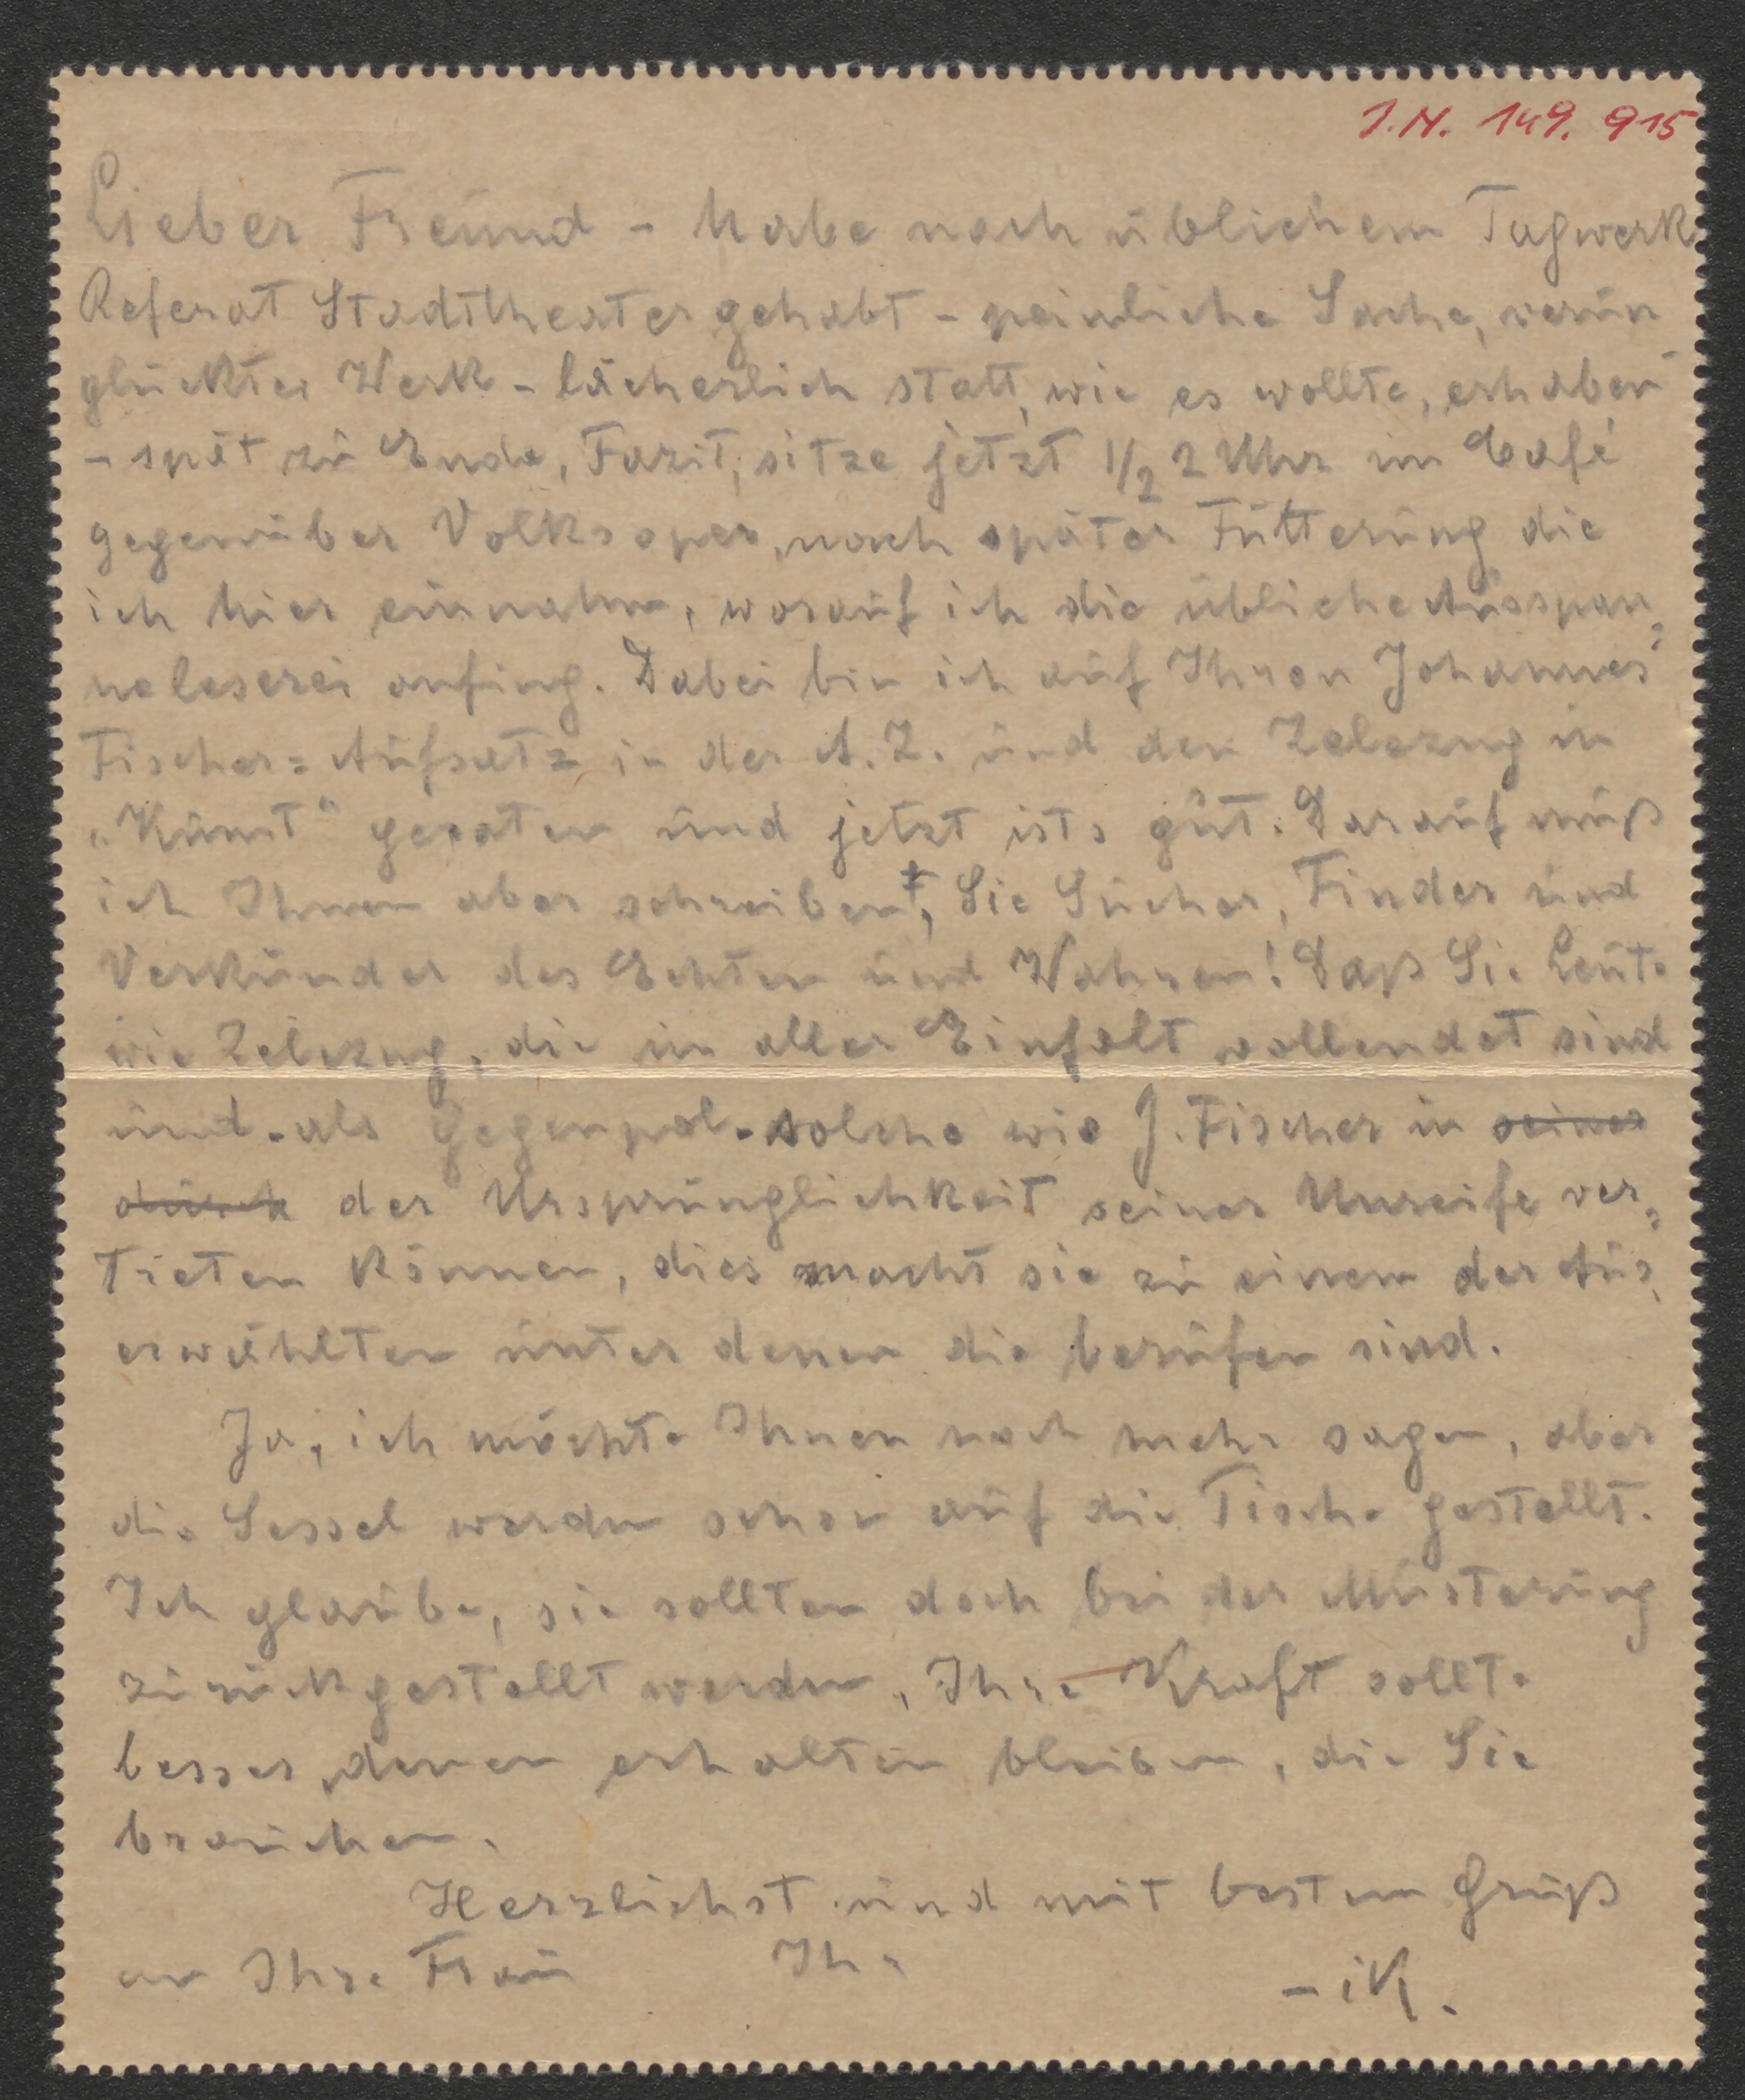 I.N. 149.915
Lieber Freund - Habe nach üblichem Tagwerk
Referat Stadttheater gehabt - peinliche Sache, verun
glücktes Werk - lächerlich statt, wie es wollte, erhaben
- spät zu Ende, Fazit, sitze jetzt 1/2 2 Uhr im Café
gegenüber Volksoper, nach später Fütterung die
ich hier einnahm, worauf ich die übliche Ausspan-
neleserei anfing. Dabei bin ich auf Ihren Johannes
Fischer=Aufsatz in der A.Z. und den Zelezny in
"Kunst" geraten und jetzt ists gut. Darauf muß
ich Ihnen aber schreiben, Sie Sucher, Finder und
Verkünder des Echten und Wahren! Daß Sie Leute
wie Zelezny, die in aller Einfalt vollendet sind
und - als Gegenpol - solche wie J. Fischer in seiner
durch der Ursprünglichkeit seiner Unreife ver-
treten können, dies macht sie zu einem der Aus-
erwählten unter denen die berufen sind.
Ja, ich möchte Ihnen noch mehr sagen, aber
die Sessel werden schon auf die Tische gestellt.
Ich glaube, sie sollten doch bei der Musterung
zurückgestellt werden, Ihre Kraft sollte
besser denen erhalten bleiben, die Sie
brauchen.
Herzlichst und mit bestem Gruß
an Ihre Frau Ihr
- iK.